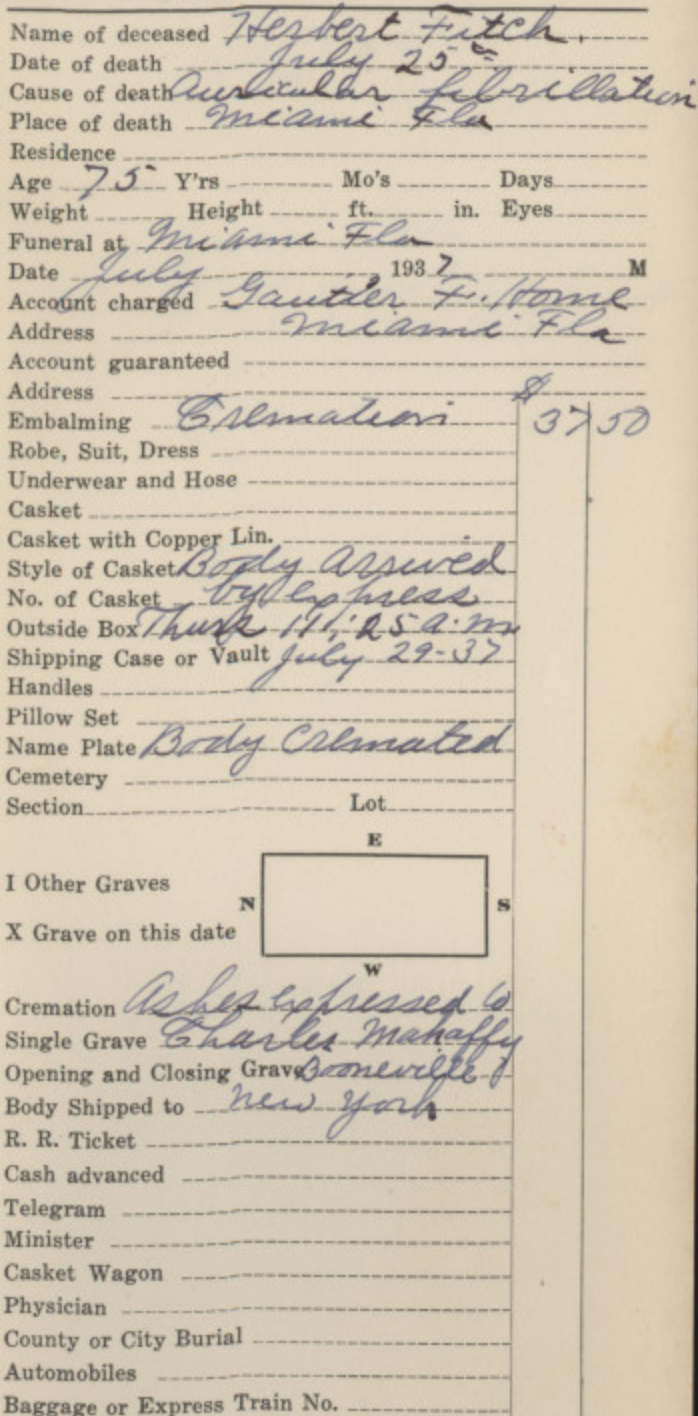 Name of deceased Herbert Fitch.
Date of death July 25
Cause of death Auricular fibrillation
Place of death Miami Fla
Residence
Age 75 Y'rs Mo's Days
Weight Height ft. in. Eyes
Funeral at Miami Fla
Date July , 1937 M
Account charged Gautier F. Home
Address Miami Fla
Account guaranteed
Address $
Embalming Cremation 37 50
Robe, Suit, Dress
Underwear and Hose
Casket
Casket with Copper Lin.
Style of Casket Body arrived
No. of Casket by express
Outside Box Thurs 11:25 a.m
Shipping Case or Vault July 29-37
Handles
Pillow Set
Name Plate Body Cremated
Cemetery
Section Lot
E
I Other Graves
N S
X Grave on this date
W
Cremation Ashes expressed to
Single Grave Charles Mahaffy
Opening and Closing Grave Booneville
Body Shipped to New York
R. R. Ticket
Cash advanced
Telegram
Minister
Casket Wagon
Physician
County or City Burial
Automobiles
Baggage or Express Train No.